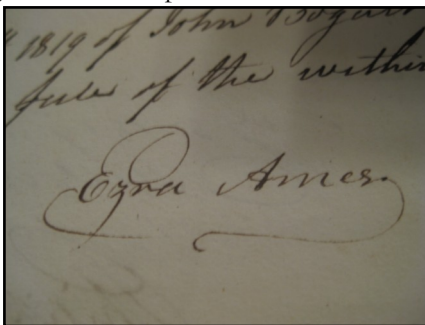 1819 of John Bogart
full of the within
Ezra Ames.